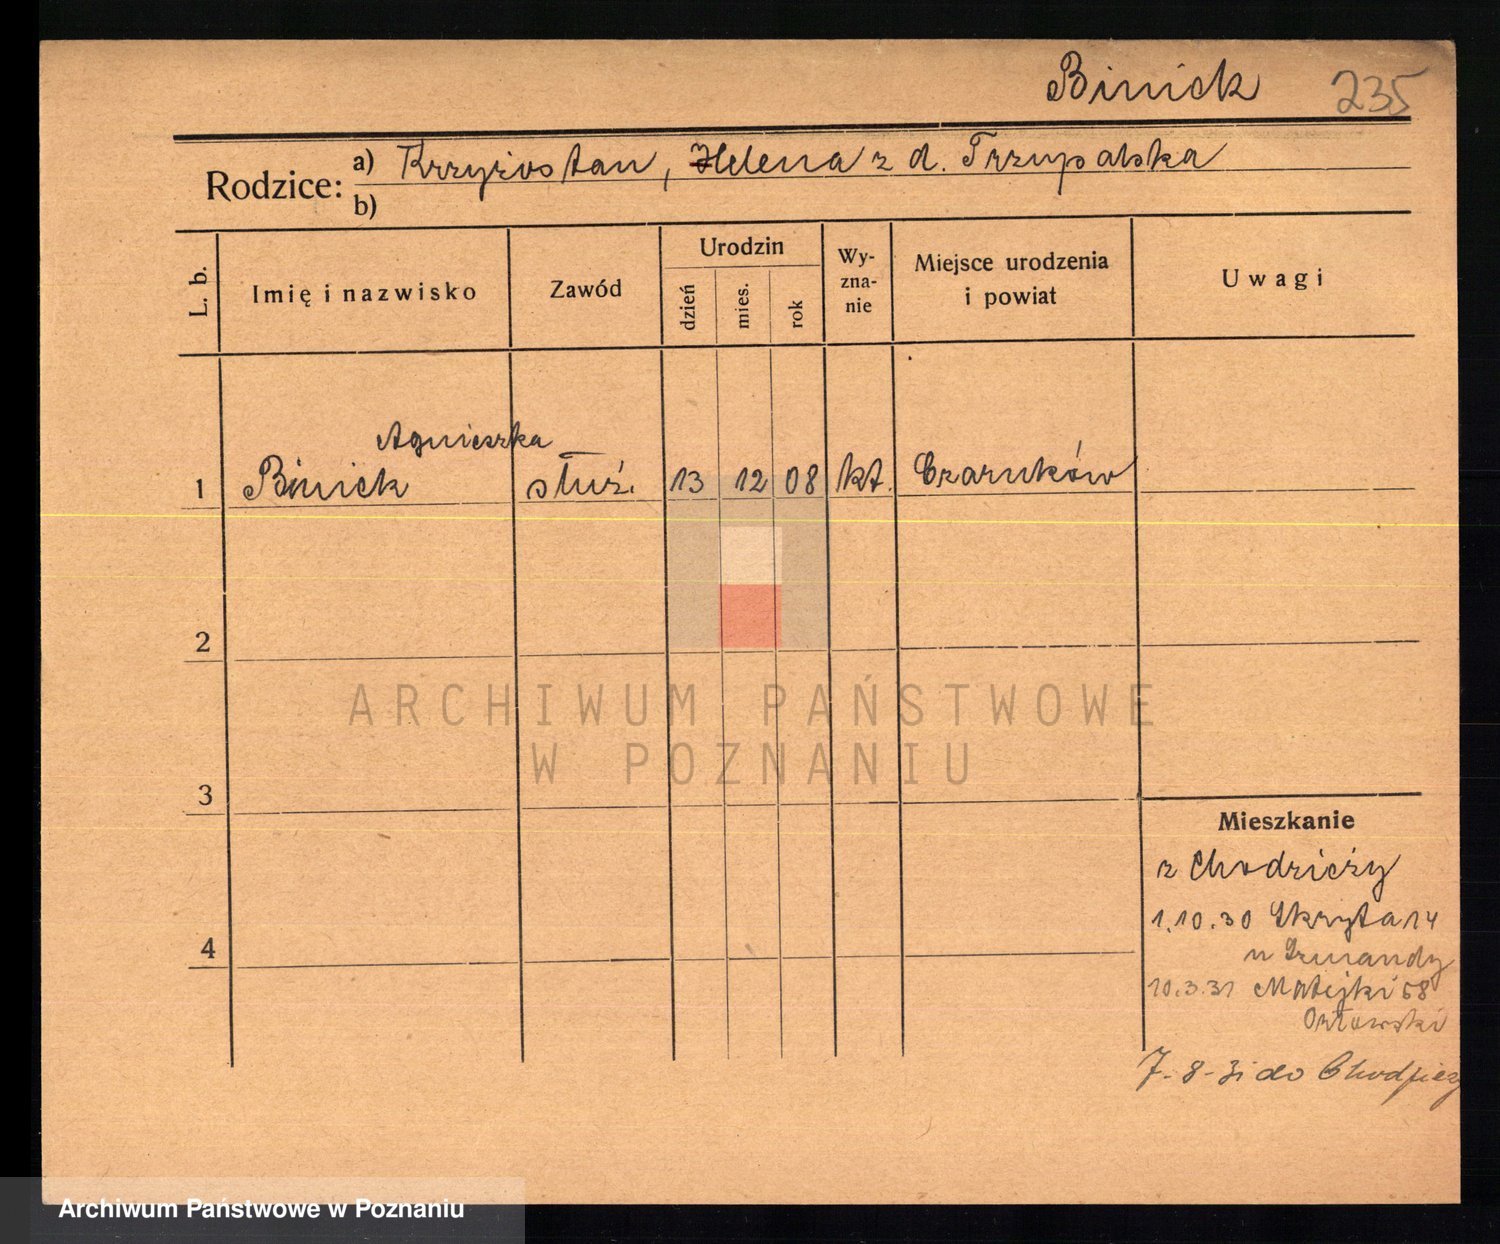 Biniek 235
Rodzice: a) Krzyżostan, Helena z d. Trzupalska
b)
L. b. Imię i nazwisko Zawód Urodzin dzień mies. rok Wy-zna-nie Miejsce urodzenia i powiat Uwagi
Agnieszka
1 Biniek służ. 13 12 08 kt. Czarnków
2
ARCHIWUM PAŃSTWOWE
W POZNANIU
3
Mieszkanie
z Chodzieży
1.10.30 Skryta 14
4
u
10.3.31 Matejki 58
Orłowski
7-8-31 do Chodzieży
Archiwum Państwowe w Poznaniu